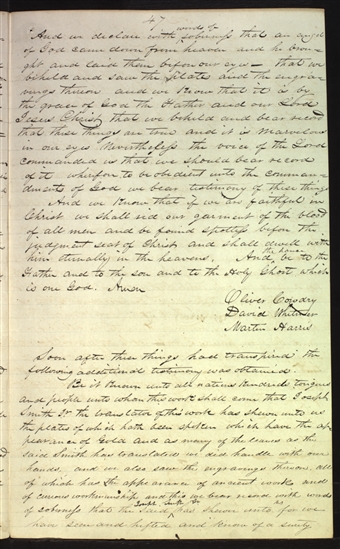 47
words of
And we declare with soberness that an angel
of God came down from heaven and he brou-
ght and laid them before our eyes— that we
beheld and saw the plates and the engra-
vings thereon and we know that it is by
the grace of God the Father and our Lord
Jesus Christ that we beheld and bear record
that these things are true and it is marvelous
in our eyes Nevertheless the voice of the Lord
commanded us that we should bear record
of it wherefore to be obedient unto the comman-
dments of God we bear testimony of these things
And we know that if we are faithful in
Christ we shall rid our garment of the blood
of all men and be found spotless before the
judgment seat of Christ and shall dwell with
him eternally in the heavens. And the honor be to the
Father and to the son and to the Holy Ghost which
is one God. Amen
Oliver Cowdry
David Whitmer
Martin Harris
Soon after these things had transpired the
following additional testimony was obtained.
Be it known unto all nations kindreds tongues
and people unto whom this work shall come that Joseph
Smith Jr the translator of this work has shewn unto us
the plates of which hath been spoken which have the ap
pearance of Gold and as many of the leaves as the
said Smith has translated we did handle with our
hands, and we also saw the engravings thereon, all
of which has the appearance of ancient work and
of curious workmanship and this we bear record with words
of soberness that the said has shewn unto for we
have seen and hefted and know of a surety